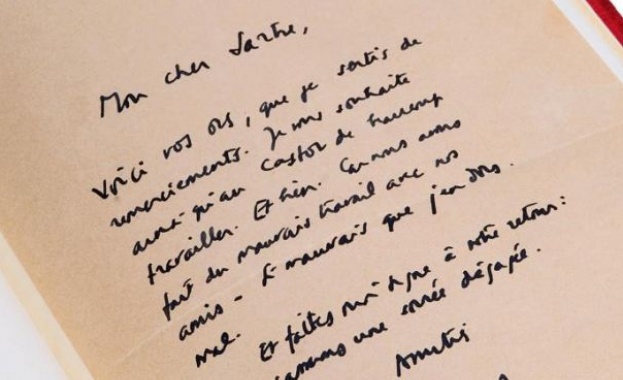 Mon cher Sartre,
Voici vos ors, que je sortis de
remerciements. Je vous souhaite
ainsi qu'au Castor de beaucoup
travailler. Et bien. Car nous avons
fait du mauvais travail avec nos
amis - Si mauvais que j'en dors
mal.
Et faites moi signe à votre retour:
une soirée dégagée.
Amitiés